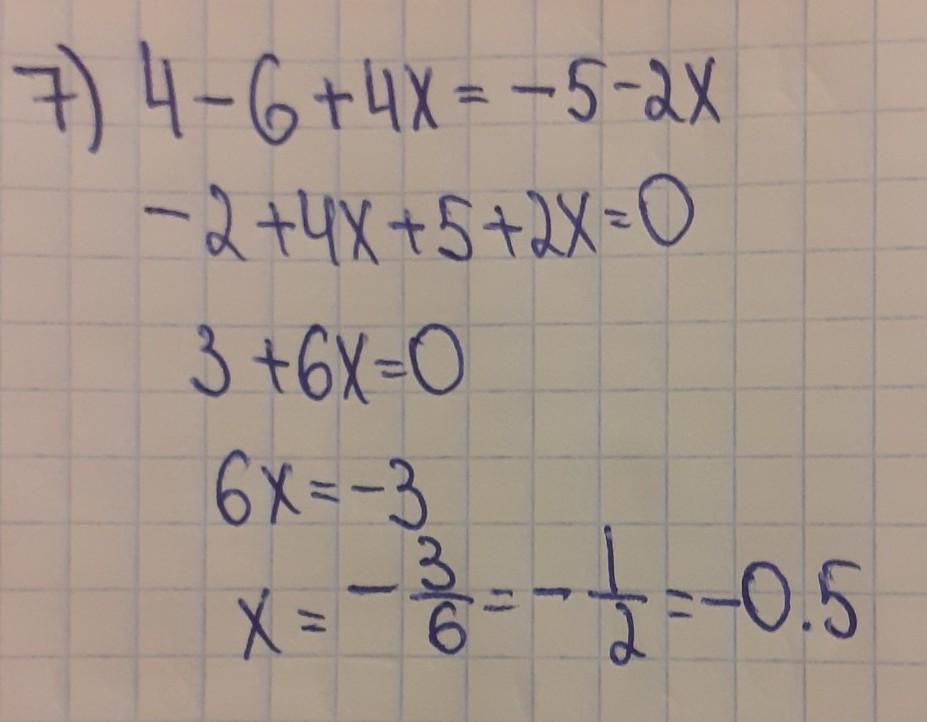 7) 4-6+4x=-5-2x
-2+4x+5+2x=0
3+6x=0
6x=-3
x=-3/6=-1/2=-0.5